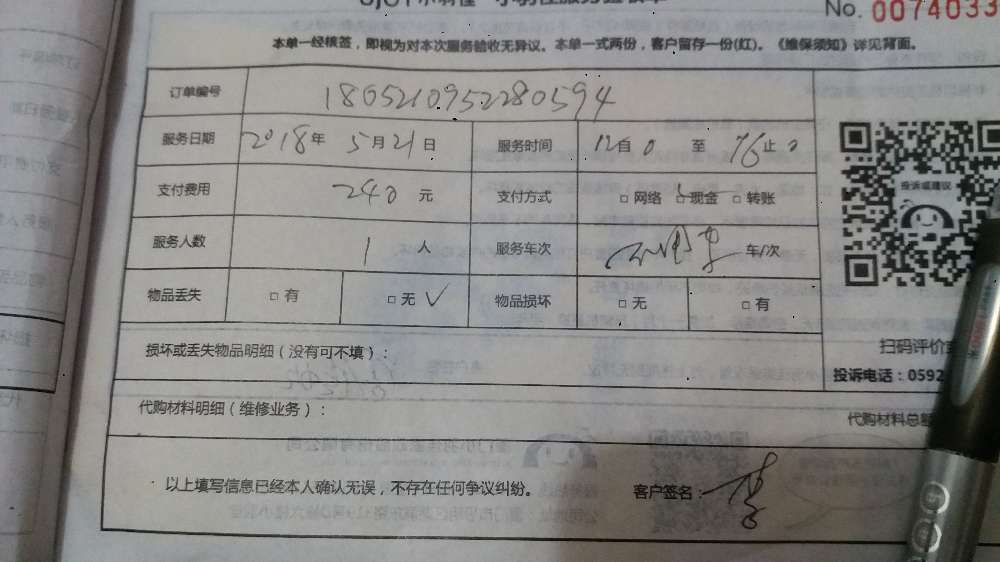 No. 0074033
本单一经核签，即视为对本次服务验收无异议。本单一式两份，客户留存一份(红)。《维保须知》详见背面。
订单编号 1805210952280594
服务日期 2018年 5月21日 服务时间 12自0 至 16止0
支付费用 240 元 支付方式 □网络 □现金 □转账
服务人数 1 人 服务车次 车/次
物品丢失 □有 □无 ✓ 物品损坏 □无 □有
投诉或建议
扫码评价
损坏或丢失物品明细（没有可不填）：
投诉电话：0592
代购材料明细（维修业务）：
代购材料总
以上填写信息已经本人确认无误，不存在任何争议纠纷。 客户签名：